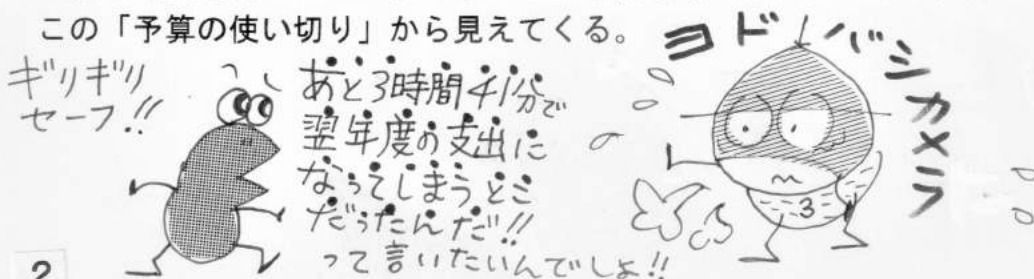 この「予算の使い切り」から見えてくる。
ギリギリ
セーフ!!
あと3時間41分で
翌年度の支出に
なってしまうとこ
だったんだ!!
って言いたいんでしょ!!
ヨドバシカメラ
3
2